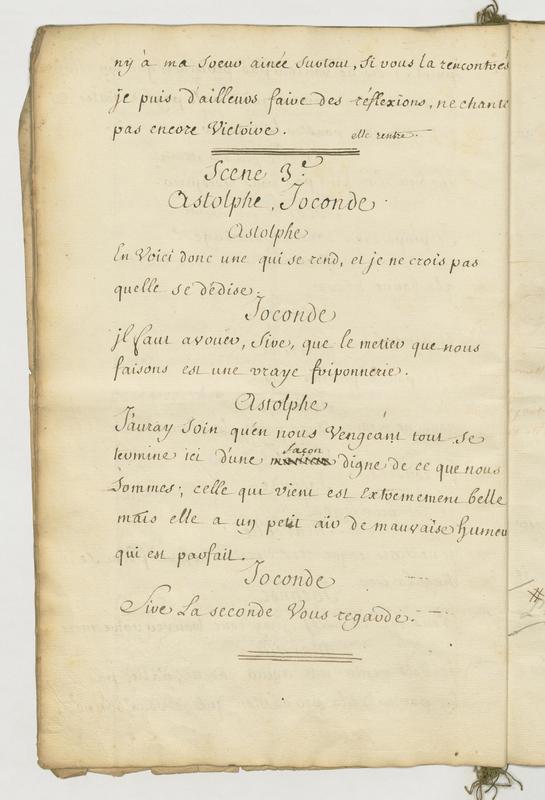 ny à ma soeur ainée surtout, si vous la rencontrés
je puis d'ailleurs faire des réflexions, ne chante
pas encore Victoire.
elle rentre.
Scene 3.e
Astolphe, Joconde
Astolphe
En voici donc une qui se rend, et je ne crois pas
quelle se dédise.
Joconde
jl faut avouer, Sire, que le metier que nous
faisons est une vraye friponnerie.
Astolphe
J'auray soin qu'en nous Vengeant tout se
façon
termine ici d'une digne de ce que nous
Sommes; celle qui vient est Extremement belle
mais elle a un petit air de mauvaise humeu
qui est parfait.
Joconde
Sire La seconde Vous regarde.
#